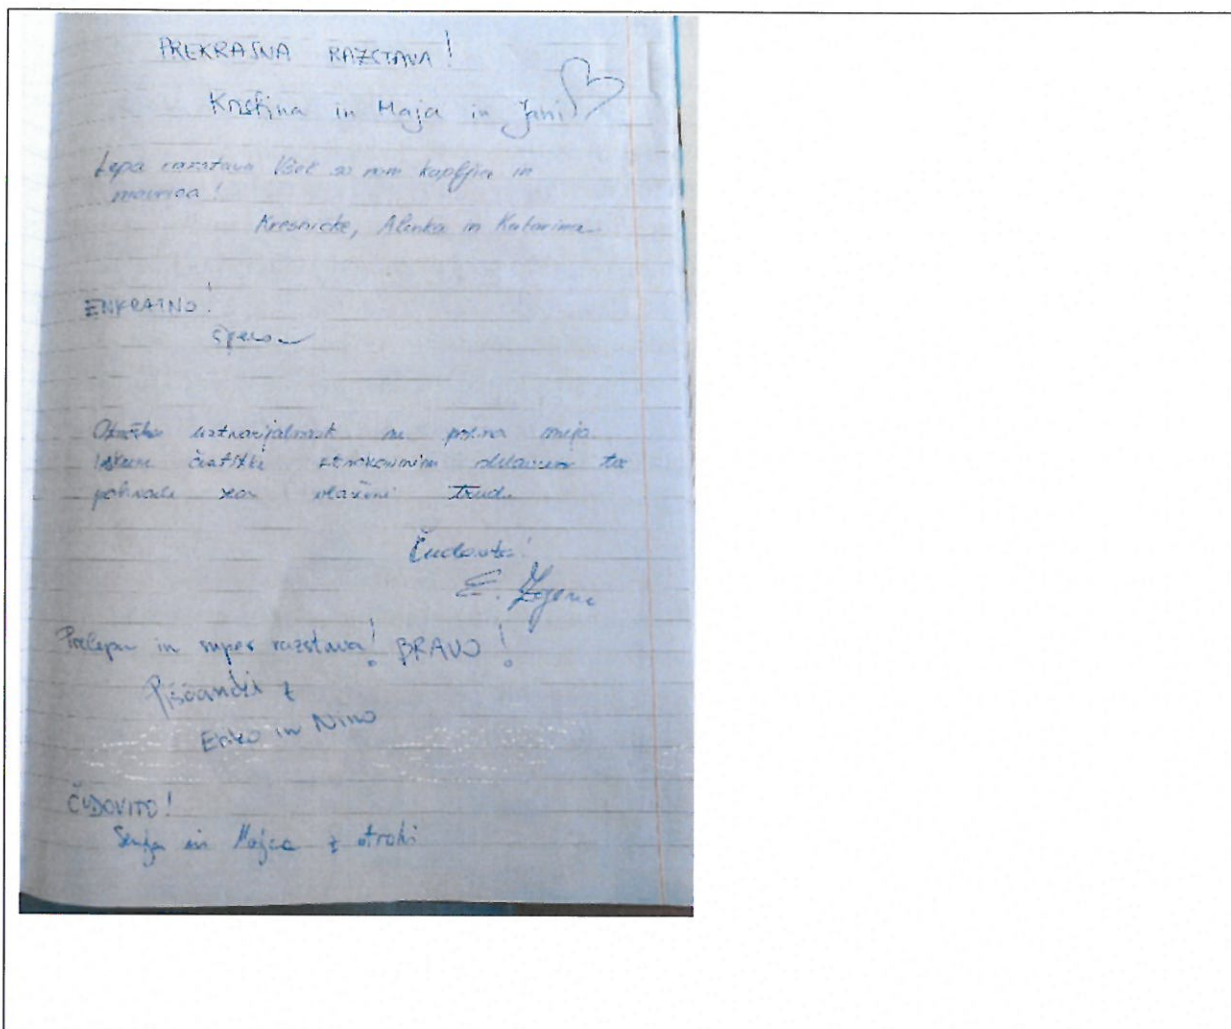 PREKRASNA RAZSTAVA!
Kristina in Maja in Jani
Lepa razstava Všeč so nam kapljica in
mavrica!
Kresničke, Alenka in Katarina
ENKRATNO!
Otroška ustvarjalnost ne pozna meja.
Iskrene čestitke strokovnim delavcem ter
pohvale za vložen trud.
Čudovito!
E.
Prelepa in super razstava! BRAVO!
Piščančki z
in Nino
ČUDOVITO!
in Mojca z otroki